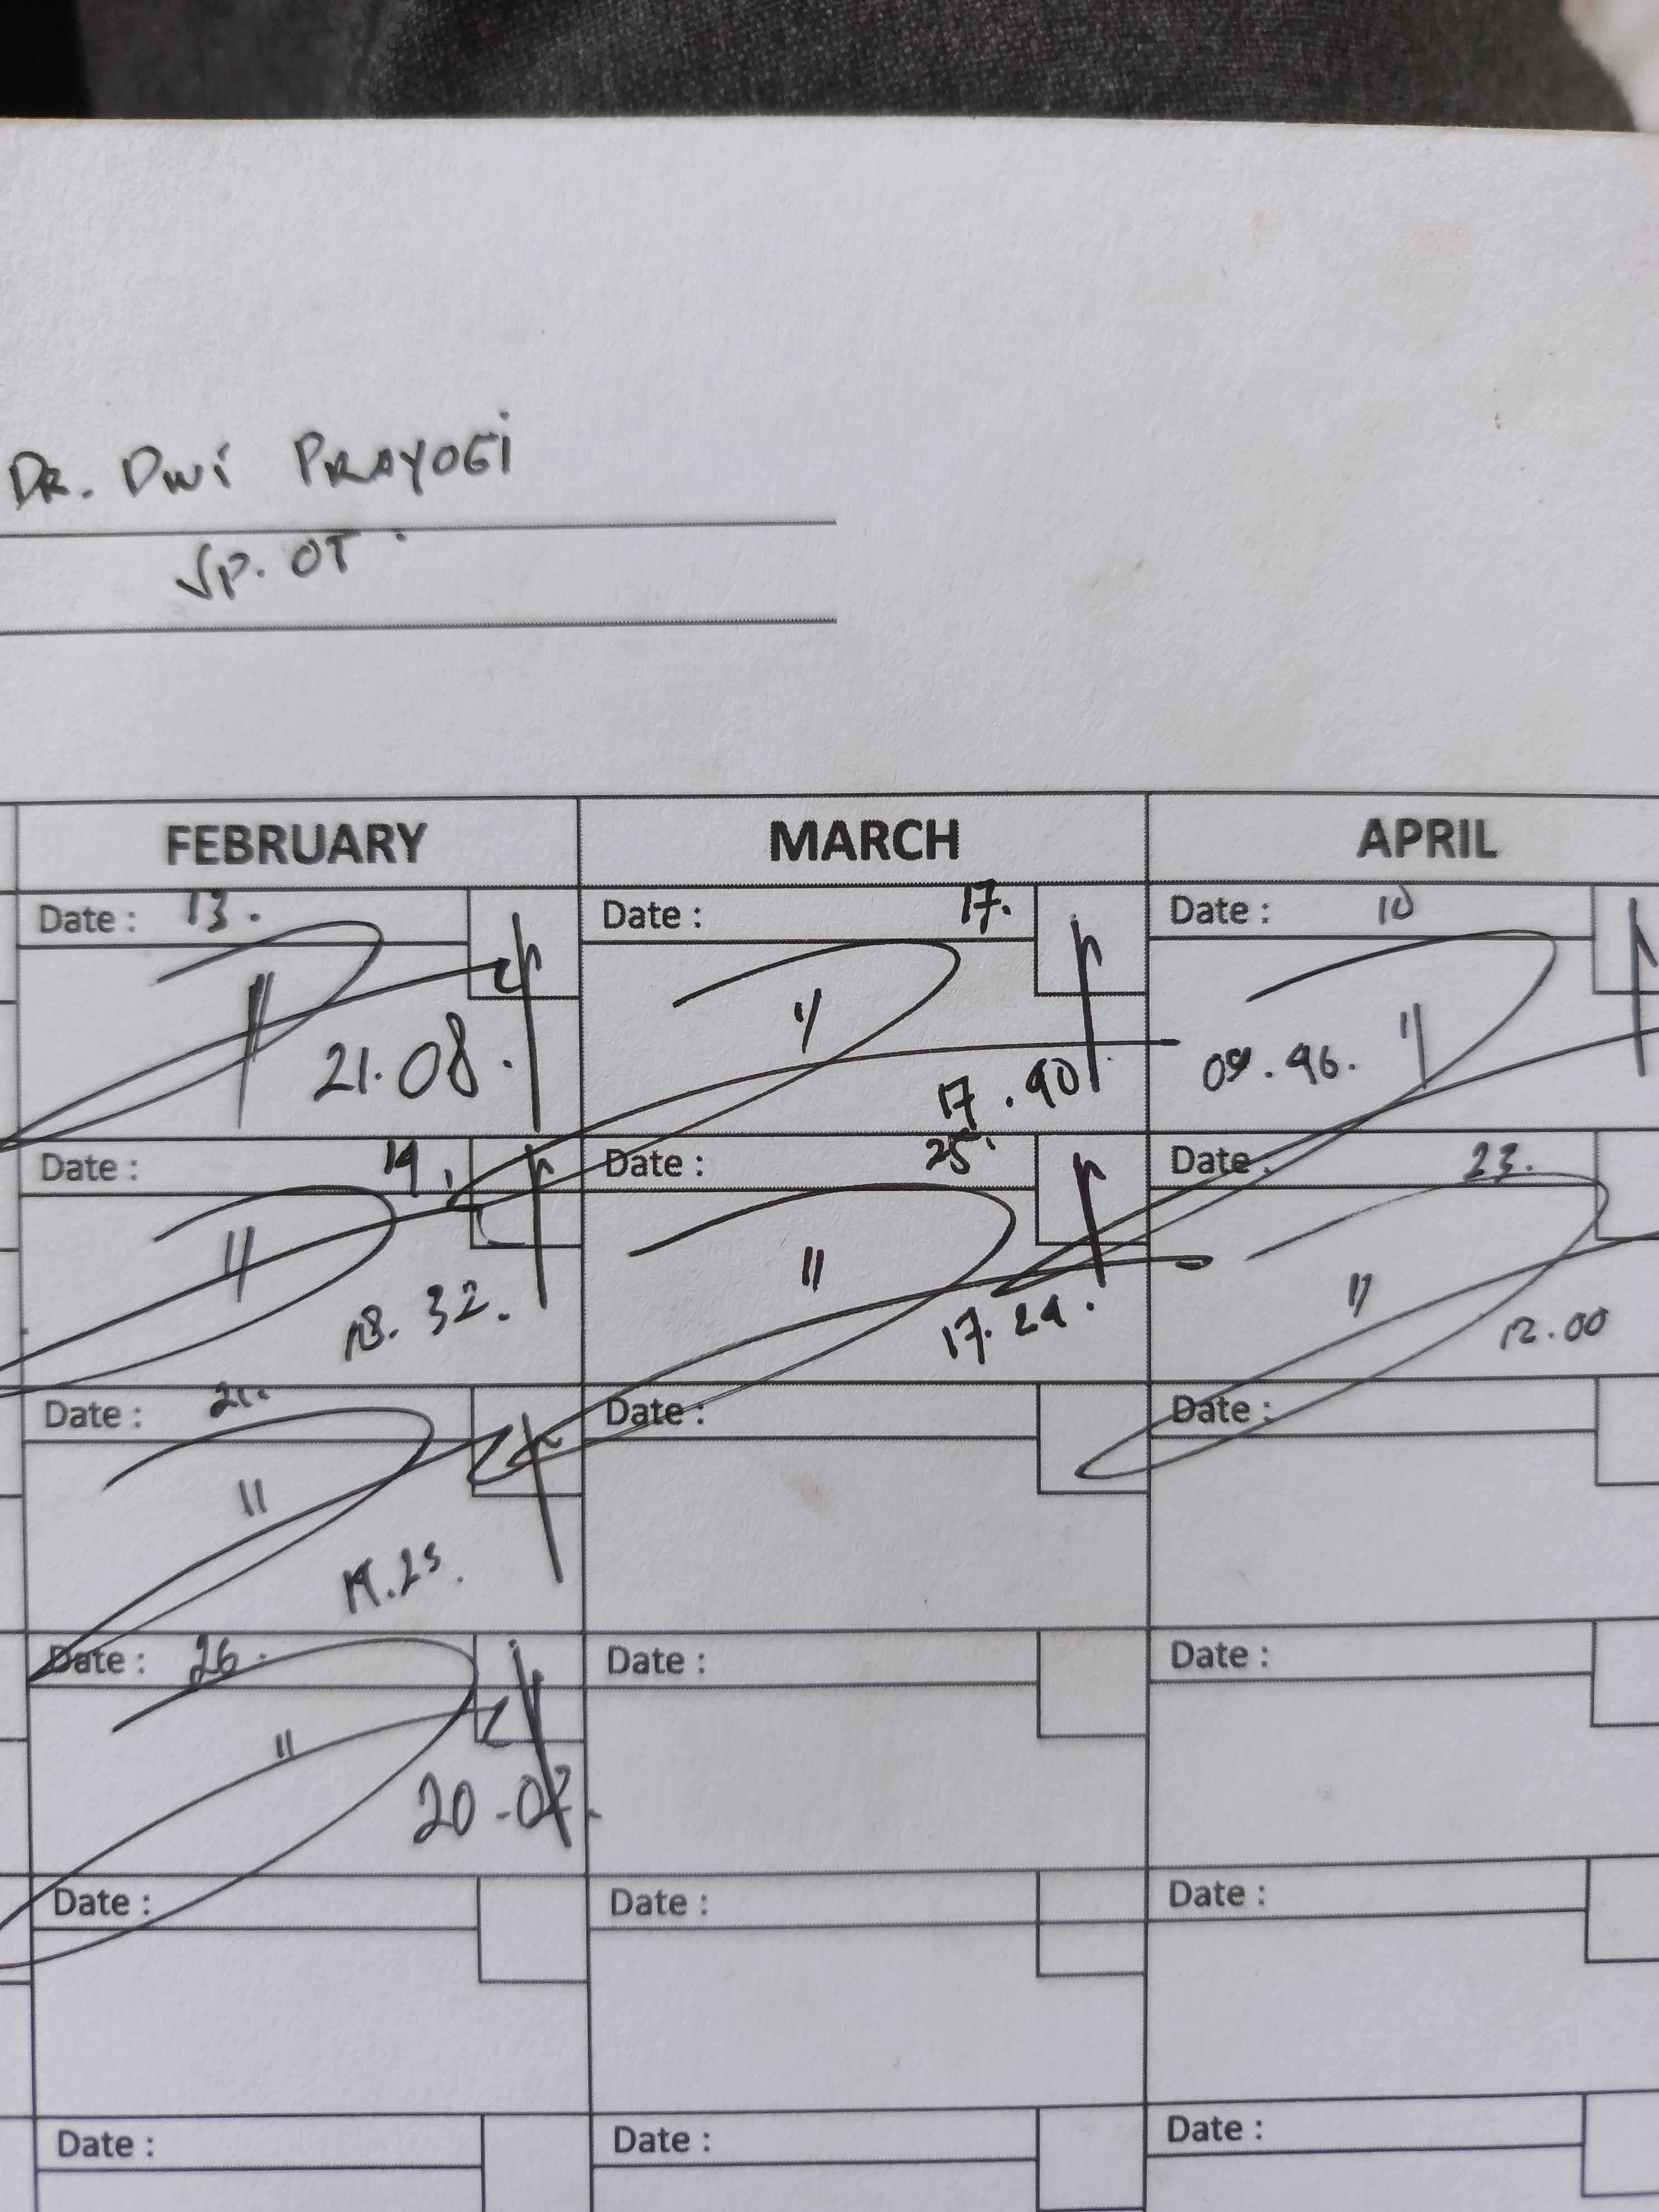 DR. DWI PRAYOGI
SP. OT
FEBRUARY MARCH APRIL
Date : 13. Date : 17. Date : 10
21.08. 17.40 09.46.
Date : 19. Date : 25. Date : 23.
18.32. 17.24. 12.00
Date : 21. Date : Date :
19.25.
Date : 26. Date : Date :
20-07.
Date : Date : Date :
Date : Date : Date :